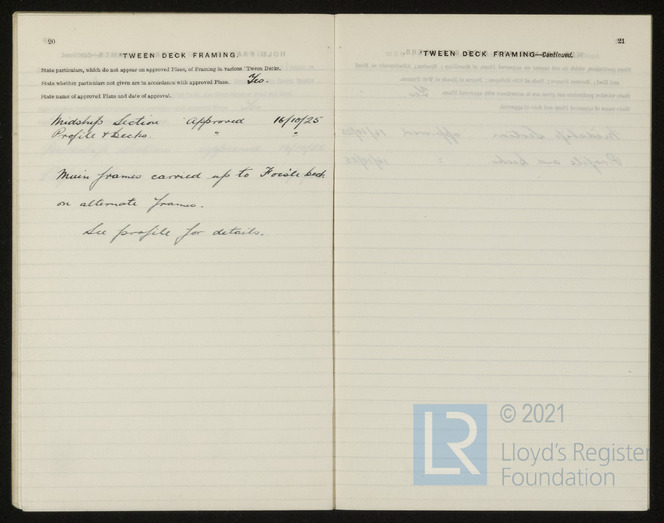 20
TWEEN DECK FRAMING
State particulars, which do not appear on approved Plans, of Framing in various 'Tween Decks.
State whether particulars not given are in accordance with approved Plans. Yes.
State name of approved Plans and date of approval.
Midship Section Approved 16/10/25
Profile & Decks. " "
Main frames carried up to Fo'c'sle deck
on alternate frames.
See profile for details.
21
TWEEN DECK FRAMING—Continued.
LR © 2021
Lloyd's Register
Foundation